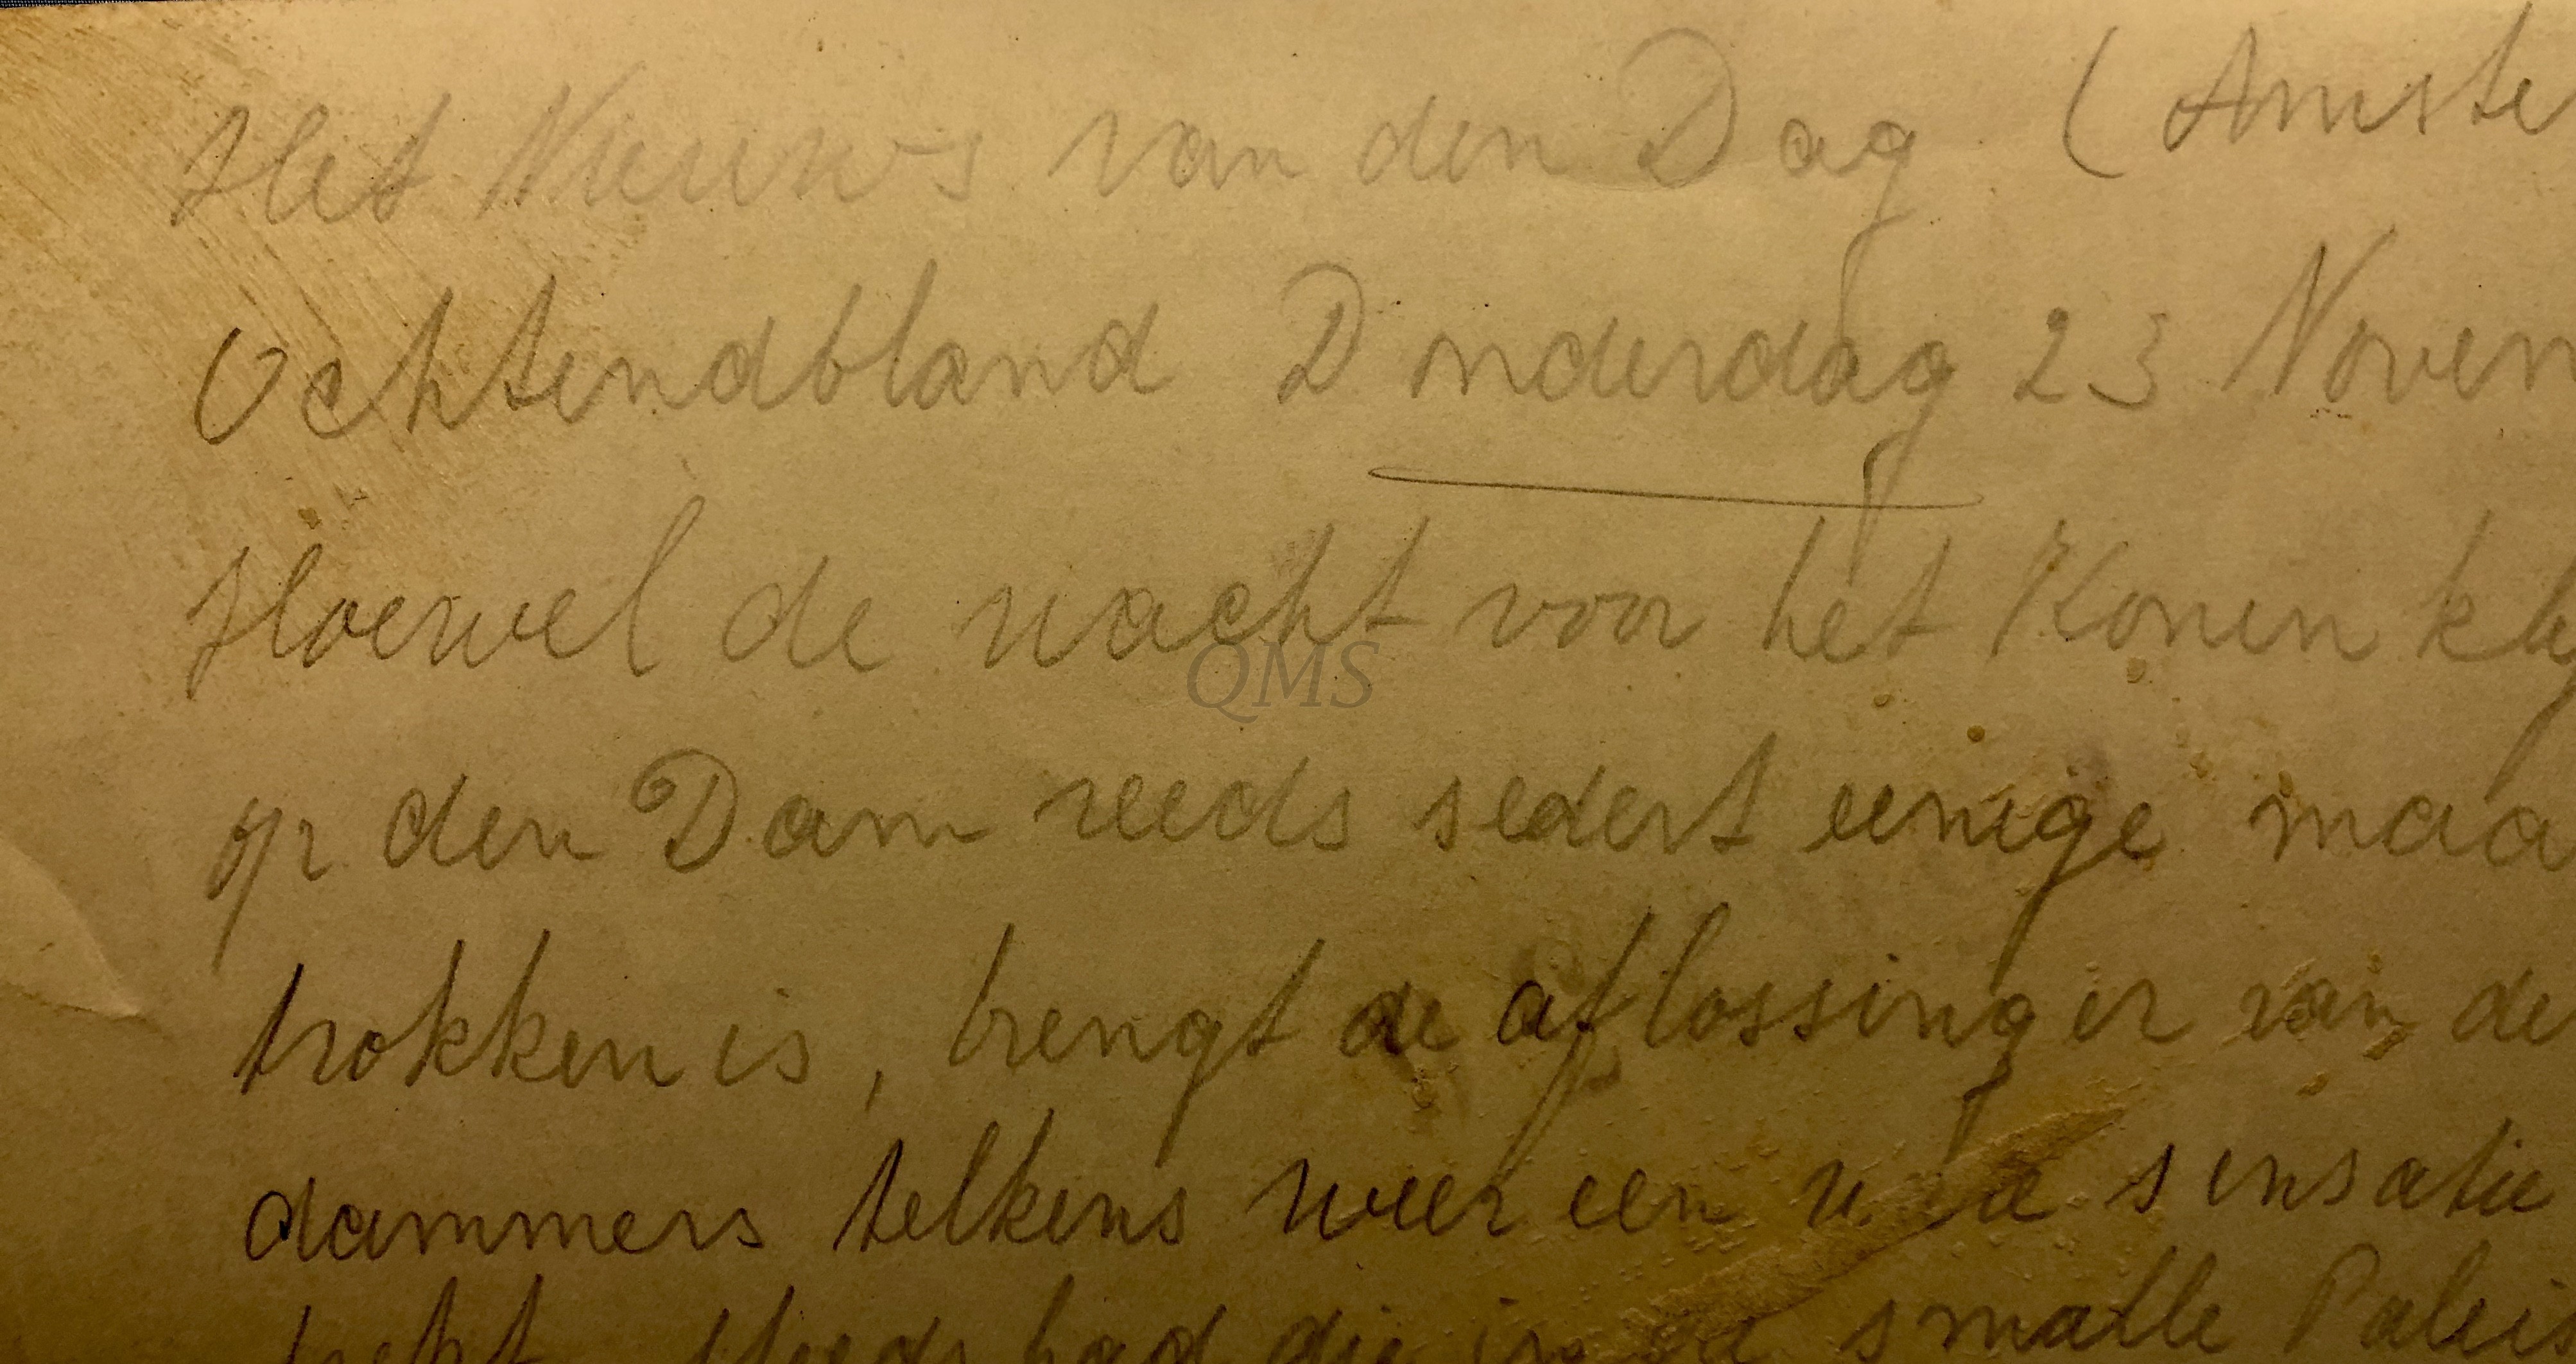 Het Nieuws van den Dag. (Amste
Ochtendbland Donderdag 23 Novem
Hoewel de wacht voor het Koninklij
op den Dam reeds sedert eenige maa
trokken is, brengt de aflossing er van de
dammers telkens weer een sensatie
Steeds had die in de smalle Paleis
QMS